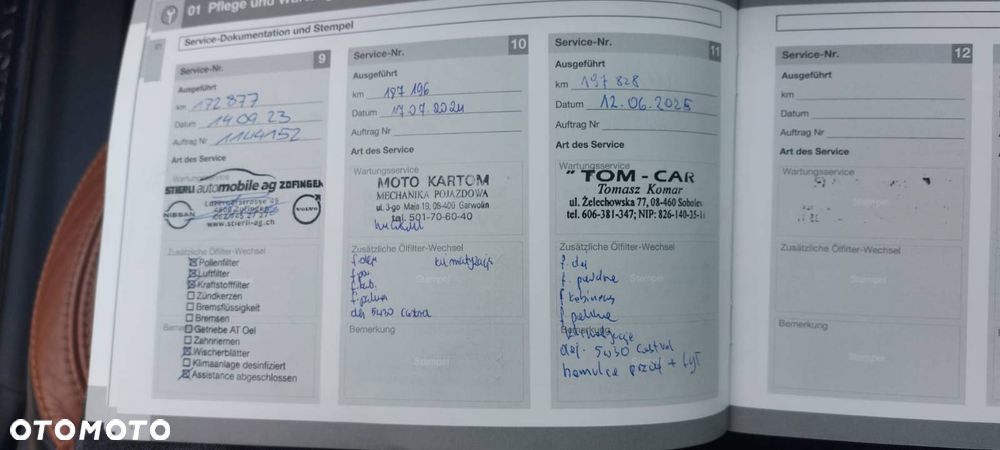 01 Pflege und
Service-Dokumentation und Stempel
Service-Nr. 9
Ausgeführt
km 172 877
Datum 14.09.23
Auftrag Nr 1144152
Art des Service
Wartungsservice
STIERLI automobile ag ZOFINGEN
NISSAN
VOLVO
www.stierli-ag.ch
Zusätzliche Ölfilter-Wechsel
Pollenfilter
Luftfilter
Kraftstofffilter
Zündkerzen
Bremsflüssigkeit
Bremsen
Getriebe AT Oel
Zahnriemen
Wischerblätter
Klimaanlage desinfiziert
Assistance abgeschlossen
Service-Nr. 10
Ausgeführt
km 187 196
Datum 17.07.2024
Auftrag Nr
Art des Service
Wartungsservice
MOTO KARTOM
MECHANIKA POJAZDOWA
ul. 3-go Maja 19, 08-400 Garwolin
tel. 501-70-60-40
Zusätzliche Ölfilter-Wechsel
f. olej
f. kab.
olej 5W30
Bemerkung
Stempel
Service-Nr. 11
Ausgeführt
km 197 828
Datum 12.06.2025
Auftrag Nr
Art des Service
Wartungsservice
"TOM - CAR
Tomasz Komar
ul. Żelechowska 77, 08-460 Sobolew
tel. 606-381-347; NIP: 826-140-35-11
Zusätzliche Ölfilter-Wechsel
Stempel
f. olej
f. kabinowy
Bemerkung
olej. 5W30 Castrol
hamulce przód + tył
Service-Nr. 12
Ausgeführt
km
Datum
Auftrag Nr
Art des Service
Wartungsservice
Zusätzliche Ölfilter-Wechsel
Stempel
Bemerkung
Stempel
OTOMOTO